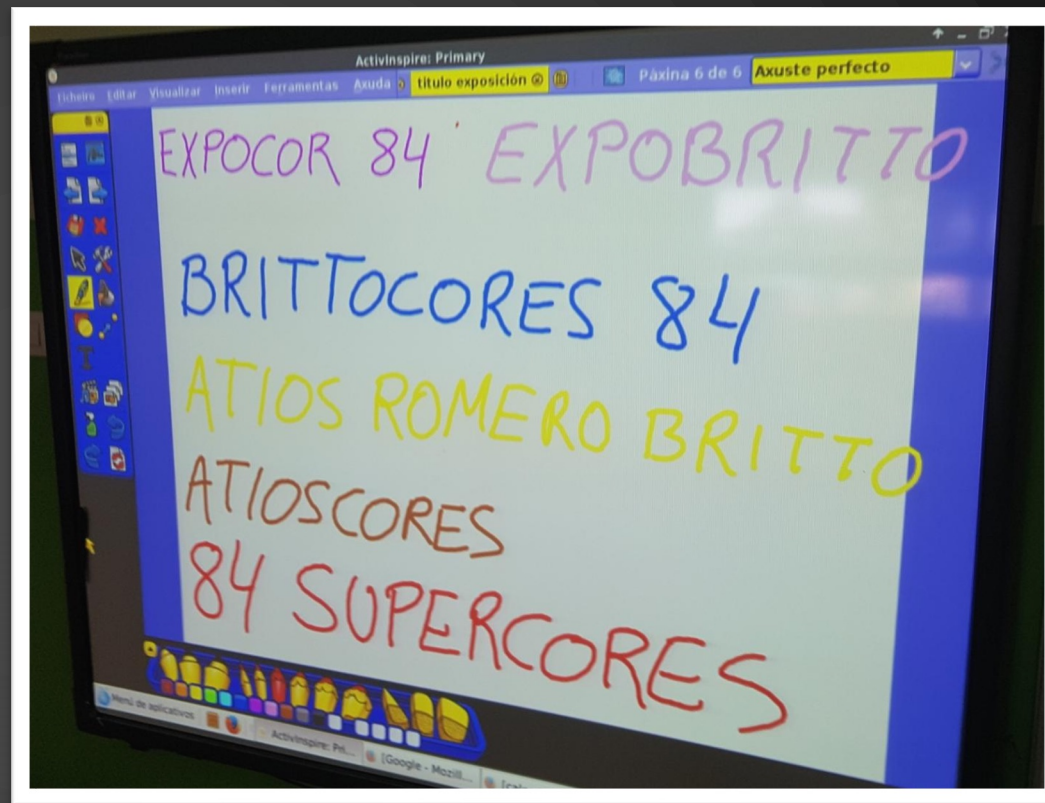 ActivInspire: Primary
Ficheiro Editar Visualizar Inserir Ferramentas Axuda titulo exposición Páxina 6 de 6 Axuste perfecto
EXPOCOR 84 EXPOBRITTO
BRITTOCORES 84
ATIOS ROMERO BRITTO
ATIOSCORES
84 SUPERCORES
Menú de aplicativos ActivInspire: Pri... [Google - Mozill...